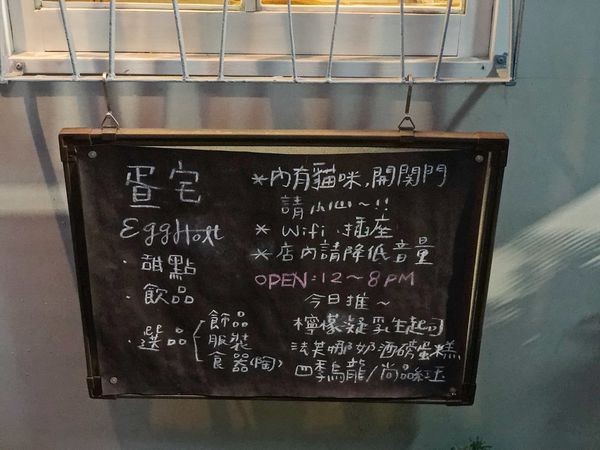 蛋宅
EggHost
·甜點
·飲品
·選品
飾品
服裝
食器(陶)
*內有貓咪,開関門
請小心~!!
* Wifi·插座
*店內請降低音量
OPEN:12~8PM
今日推~
檸檬凝乳生起司
法芙娜奶酒磅蛋糕
四季烏龍/尚品紅玉